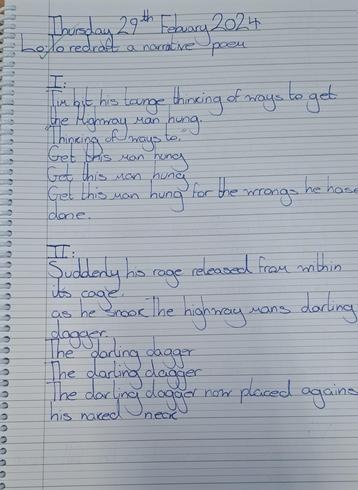 Thursday 29th Febuary 2024
Lo: To redraft a narrative poem
I:
Tim bit his tounge thinking of ways to get
the Highway man hung.
Thinking of ways to.
Get this man hung
Get this man hung
Get this man hung for the wrongs he hase
done.
II:
Suddenly his rage released from within
its cage.
as he snook The highway mans darling
dagger.
The darling dagger
The darling dagger
The darling dagger now placed agains
his naked neck